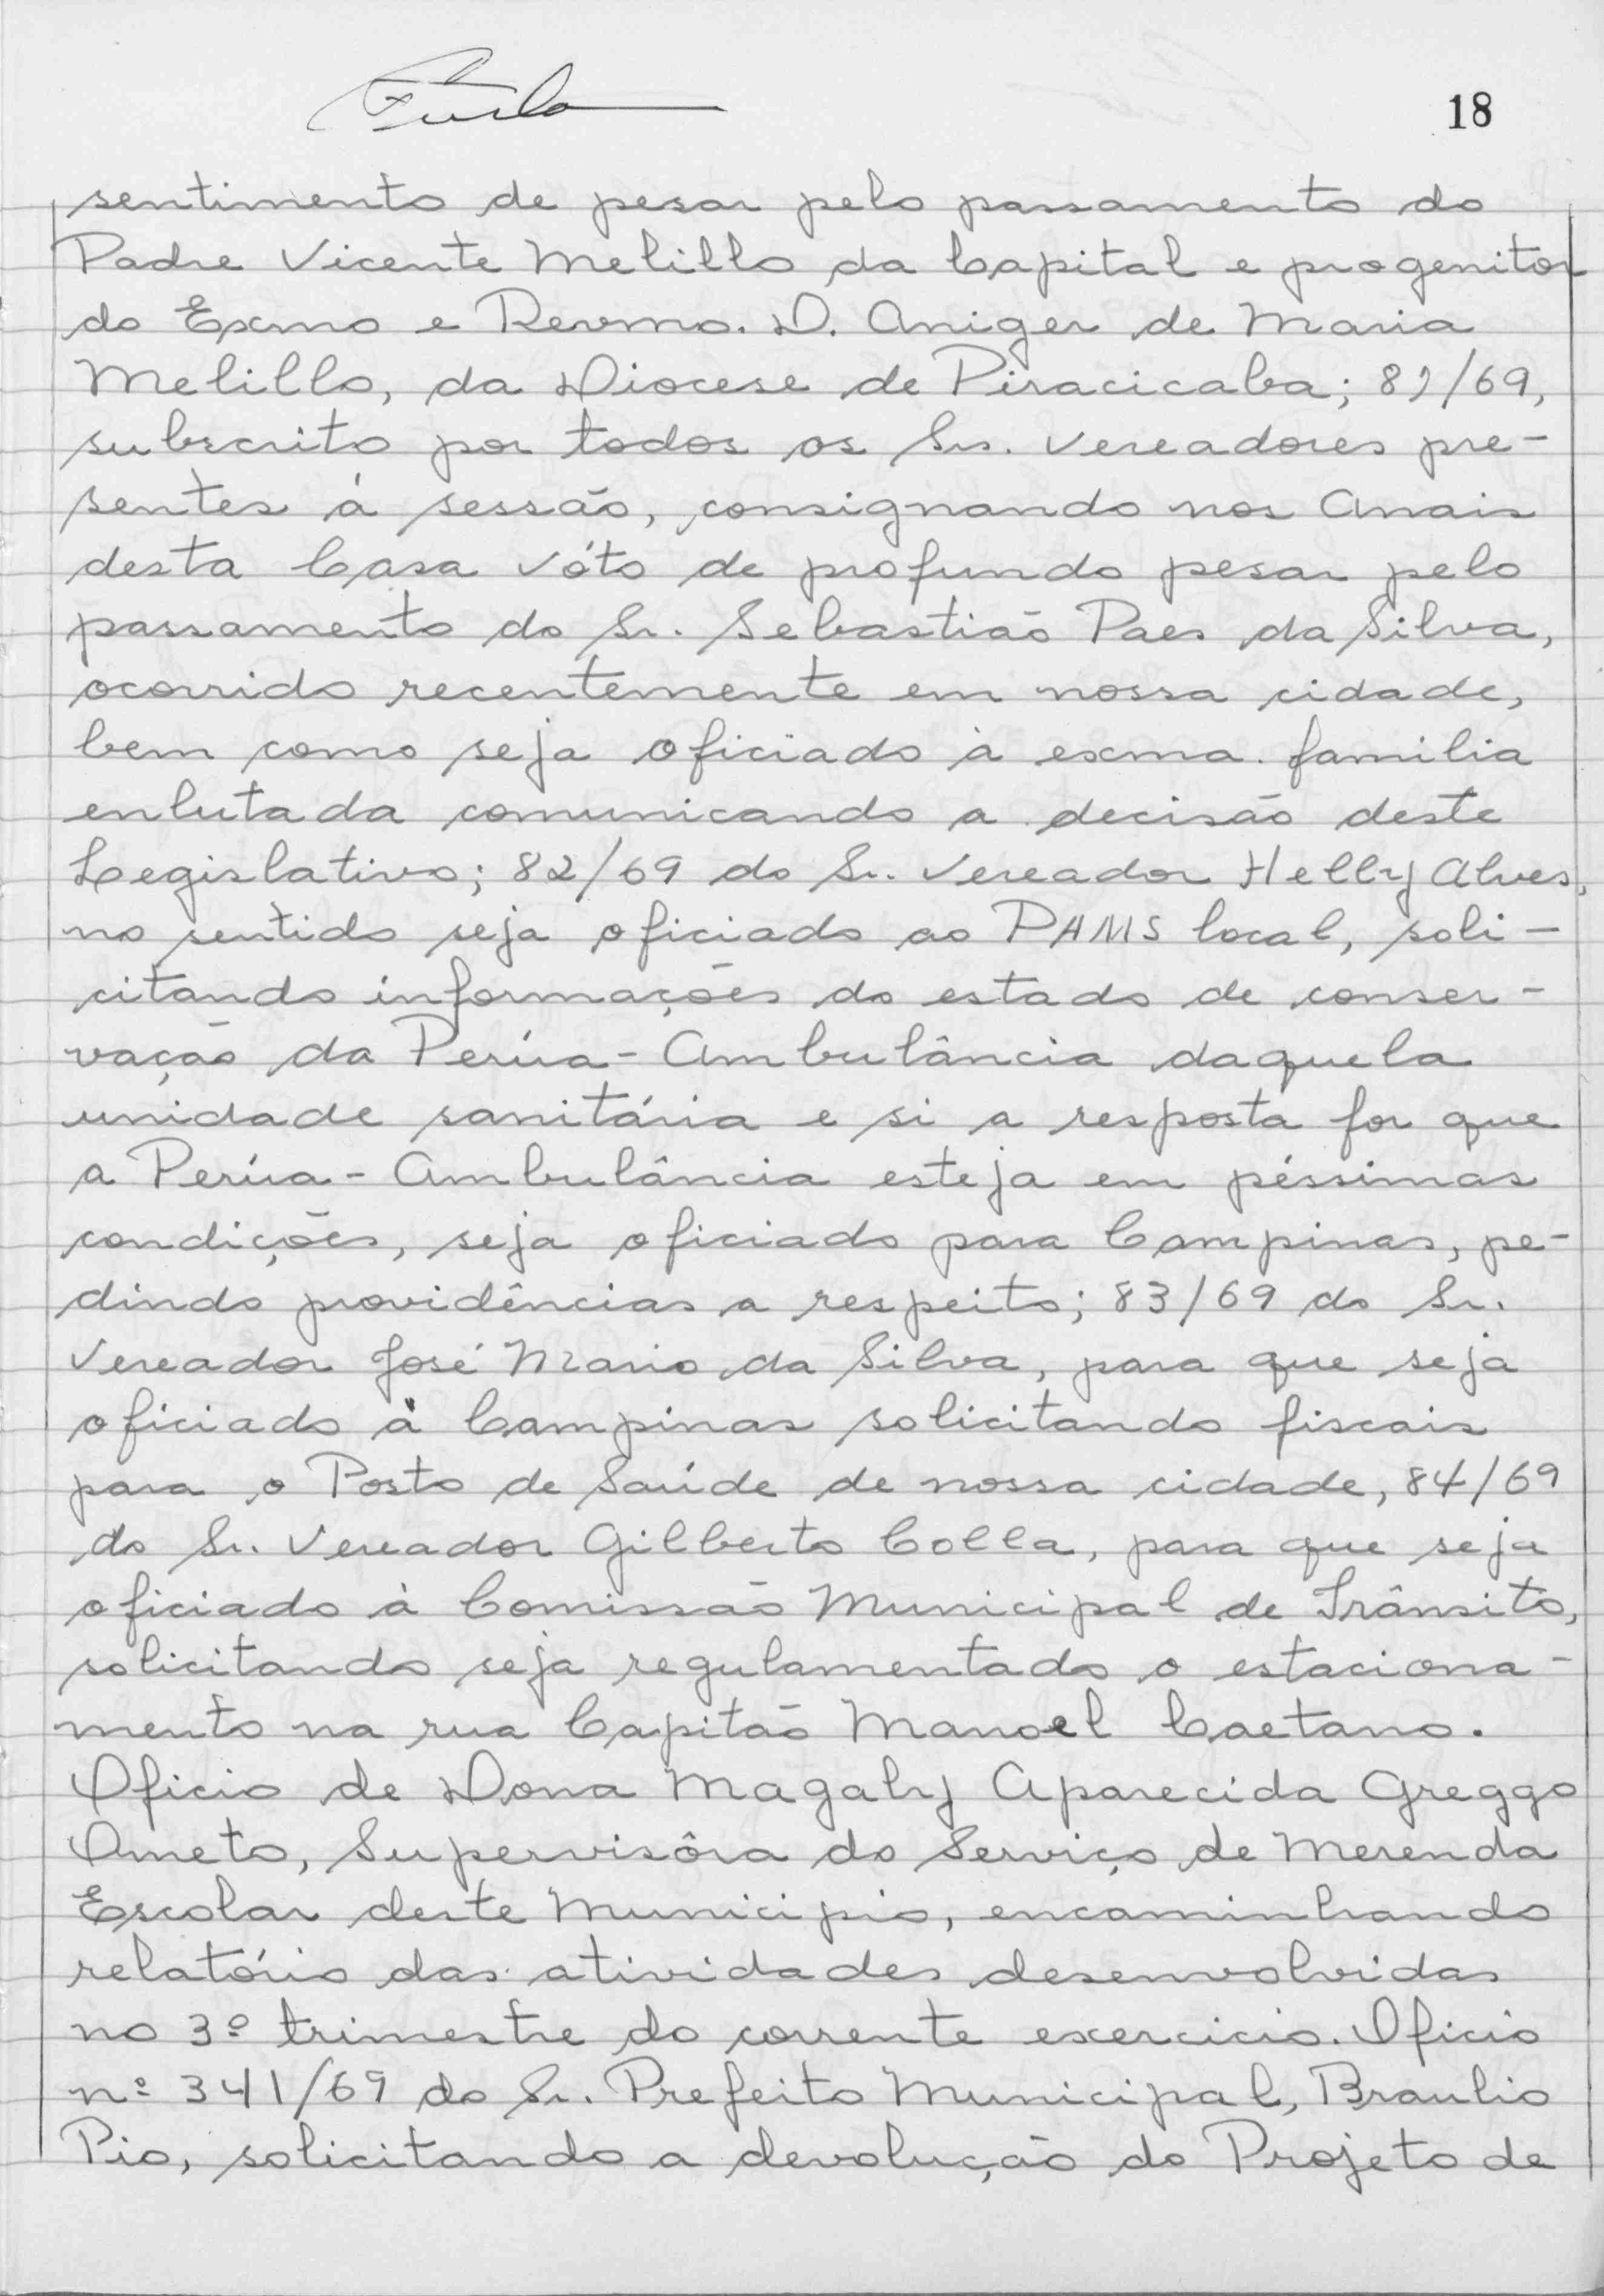 18
sentimento de pesar pelo passamento do
Padre Vicente Melillo da Capital e progenitor
do Exmo e Revmo. D. Aniger de Maria
Melillo, da Diocese de Piracicaba; 81/69,
subscrito por todos os Srs. Vereadores pre-
sentes à sessão, consignando nos Anais
desta Casa vóto de profundo pesar pelo
passamento do Sr. Sebastião Paes da Silva,
ocorrido recentemente em nossa cidade,
bem como seja oficiado à exma. familia
enlutada comunicando a decisão deste
Legislativo; 82/69 do Sr. Vereador Helly Alves,
no sentido seja oficiado ao PAMS local, soli-
citando informações do estado de conser-
vação da Perúa-Ambulância daquela
unidade sanitária e si a resposta for que
a Perúa-Ambulância esteja em péssimas
condições, seja oficiado para Campinas, pe-
dindo providências a respeito; 83/69 do Sr.
Vereador José Mario da Silva, para que seja
oficiado à Campinas solicitando fiscais
para o Posto de Saúde de nossa cidade, 84/69
do Sr. Vereador Gilberto Colla, para que seja
oficiado à Comissão Municipal de Trânsito,
solicitando seja regulamentado o estaciona-
mento na rua Capitão Manoel Caetano.
Oficio de Dona Magaly Aparecida Greggo
Ometo, Supervisôra do Serviço de Merenda
Escolar deste Municipio, encaminhando
relatório das atividades desenvolvidas
no 3º trimestre do corrente exercicio. Oficio
nº 341/69 do Sr. Prefeito Municipal, Braulio
Pio, solicitando a devolução do Projeto de